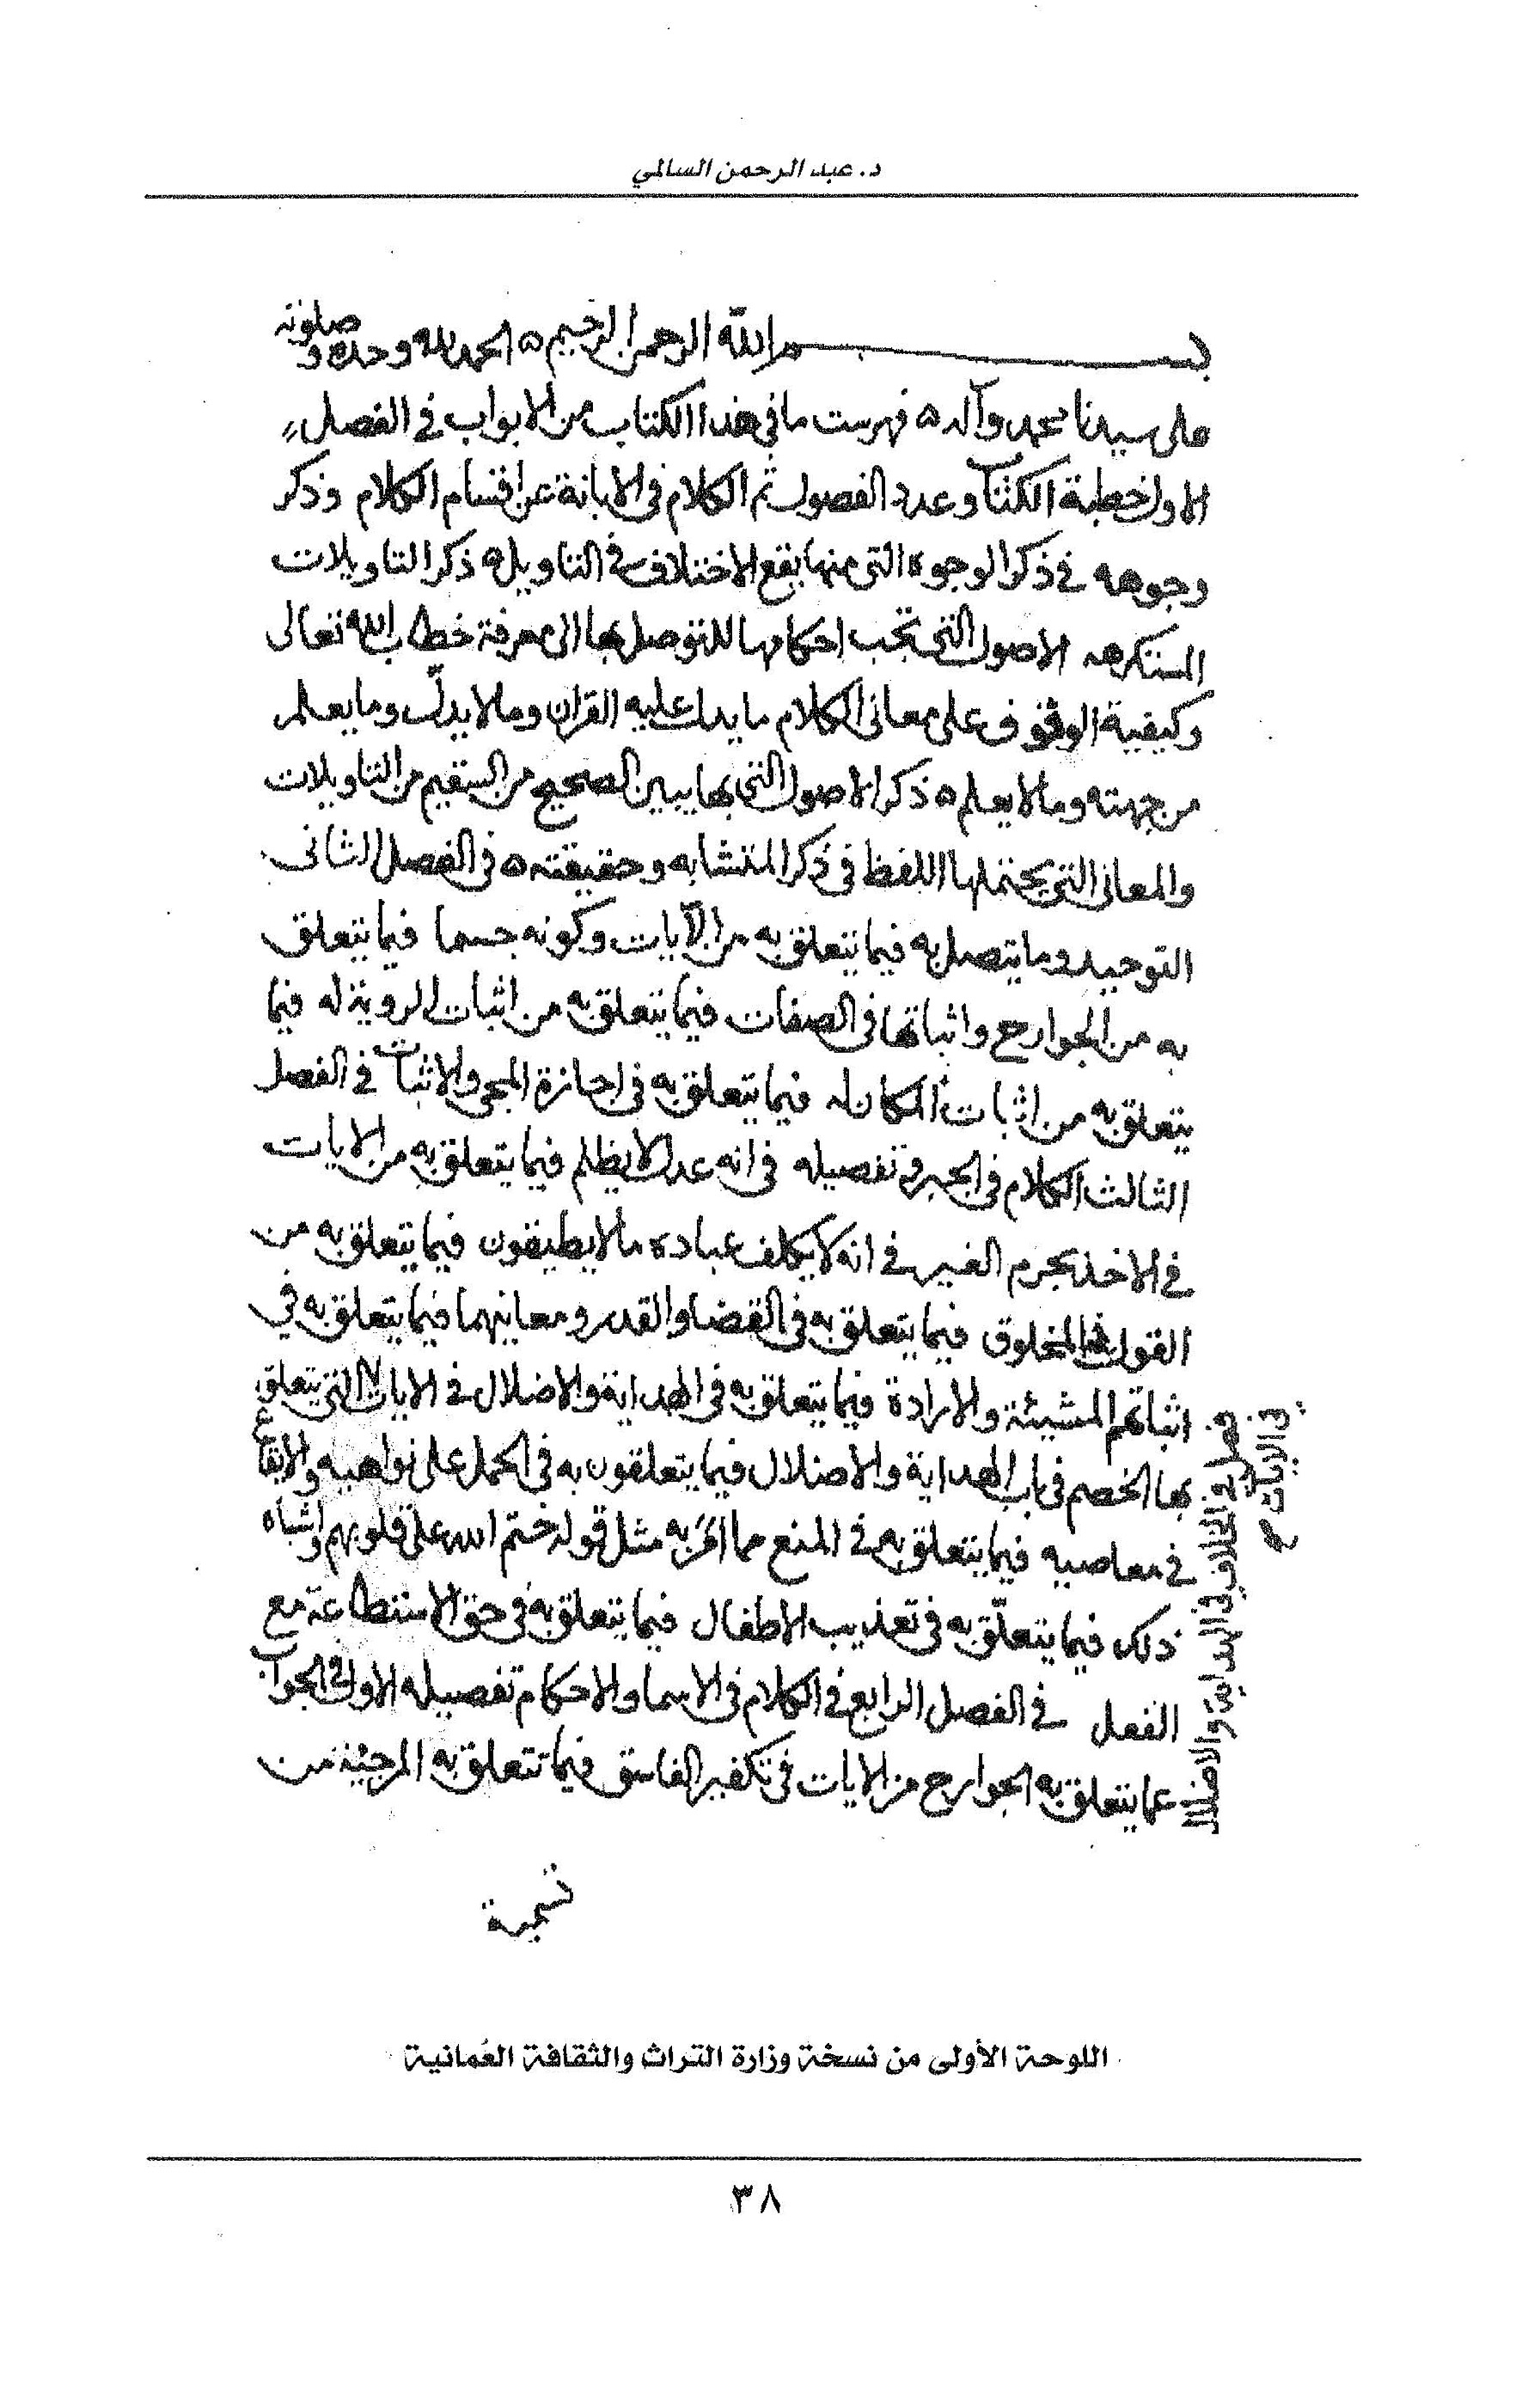 د. عبد الرحمن السالمي
بسم الله الرحمن الرحيم ه الحمد لله وحده وصلوته
على سيدنا محمد وآله ه فهرست ما في هذا الكتاب من الابواب في الفصل
الاول خطبة الكتاب وعدد الفصول ثم الكلام في الابانة عن اقسام الكلام وذكر
وجوهه في ذكر الوجوه التي منها يقع الاختلاف في التاويل ه ذكر التاويلات
المستكرهه الاصول التي تجب احكامها للتوصل بها الى معرفة خطاب الله تعالى
وكيفية الوقوف على معاني الكلام ما يدل عليه القران وما لا يدلّ وما يعلم
من جهته وما لا يعلم ه ذكر الاصول التي بها يبين الصحيح من السقيم من التاويلات
والمعاني التي يحتملها اللفظ في ذكر المتشابه وحقيقته ه في الفصل الثاني
التوحيد وما يتصل به فيما يتعلق به من الآيات وكونه جسما فيما يتعلق
به من الجوارح واثباتها في الصفات فيما يتعلق به من اثبات الروية له فيما
يتعلق به من اثبات المكان له فيما يتعلق به في اجازة المجي والاثبات في الفصل
الثالث الكلام في الجبر وتفصيله في انه عدل لا يظلم فيما يتعلق به من الايات
في الاخذ بجرم الغير في انه لا يكلف عباده ما لا يطيقون فيما يتعلق به من
القول المخلوق فيما يتعلق به في القضا والقدر ومعانيهما فيما يتعلق به في
اثباتهم المشيئة والارادة فيما يتعلق به في الهداية والاضلال في الايات التي يتعلق
بها الخصم في باب الهداية والاضلال فيما يتعلقون به في الحمل على نواهيه والايقاع
في معاصيه فيما يتعلق به في المنع مما امر به مثل قوله ختم الله على قلوبهم واشباه
ذلك فيما يتعلّق به في تعذيب الاطفال فيما يتعلق به في حق الاستطاعة مع
الفعل في الفصل الرابع في الكلام في الاسما والاحكام تفصيله الاول في الجواب
عما يتعلق به الجوارج من الايات في تكفير الفاسق فيما تتعلق به المرجئة من
في الهداية والاضلال
في الايات
اللوحة الأولى من نسخة وزارة التراث والثقافة العُمانية
٣٨